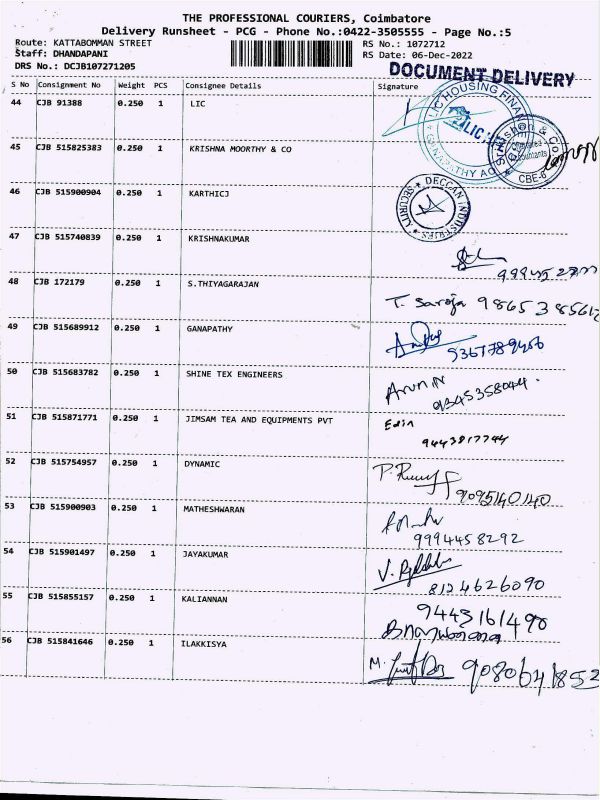 THE PROFESSIONAL COURIERS, Coimbatore
Delivery Runsheet - PCG - Phone No.:0422-3505555 - Page No.:5
Route: KATTABOMMAN STREET
Staff: DHANDAPANI
DRS No.: DCJB107271205
RS No.: 1072712
RS Date: 06-Dec-2022
DOCUMENT DELIVERY
S No Consignment No Weight PCS Consignee Details Signature
44 CJB 91388 0.250 1 LIC
LIC HOUSING FINAN
LIC
GANAPATHY AO
45 CJB 515825383 0.250 1 KRISHNA MOORTHY & CO
& Co
CBE-6
46 CJB 515900904 0.250 1 KARTHICJ
DECCAN INDUSTRIES
SECURITY
47 CJB 515740839 0.250 1 KRISHNAKUMAR
48 CJB 172179 0.250 1 S.THIYAGARAJAN
T. Saroja 98653 85612
49 CJB 515689912 0.250 1 GANAPATHY
9367789456
50 CJB 515683782 0.250 1 SHINE TEX ENGINEERS
Arun N
9345358044.
51 CJB 515871771 0.250 1 JIMSAM TEA AND EQUIPMENTS PVT
Edin
9443817744
52 CJB 515754957 0.250 1 DYNAMIC
9095140140
53 CJB 515900903 0.250 1 MATHESHWARAN
9994458292
54 CJB 515901497 0.250 1 JAYAKUMAR
8124626090
55 CJB 515855157 0.250 1 KALIANNAN
9443161490
56 CJB 515841646 0.250 1 ILAKKISYA
9080641852